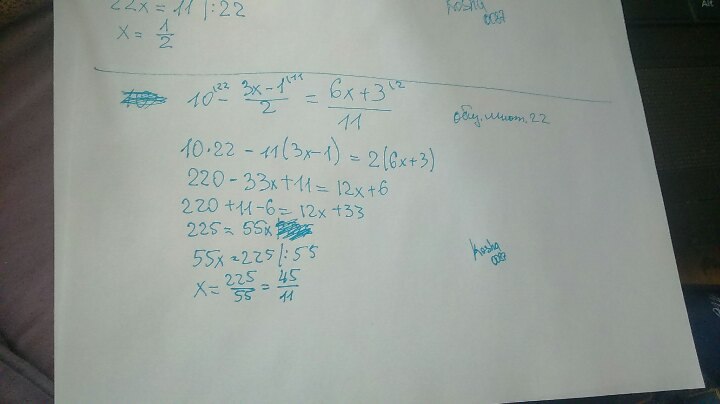 22x = 11 |:22
x = 1/2
Koshy
0087
10^\22 - (3x-1)/2^\11 = (6x+3)/11^\2
общ. множ. 22
10·22 - 11(3x-1) = 2(6x+3)
220 - 33x + 11 = 12x + 6
220 + 11 - 6 = 12x + 33
225 = 55x
55x = 225 |:55
x = 225/55 = 45/11
Koshy
0087